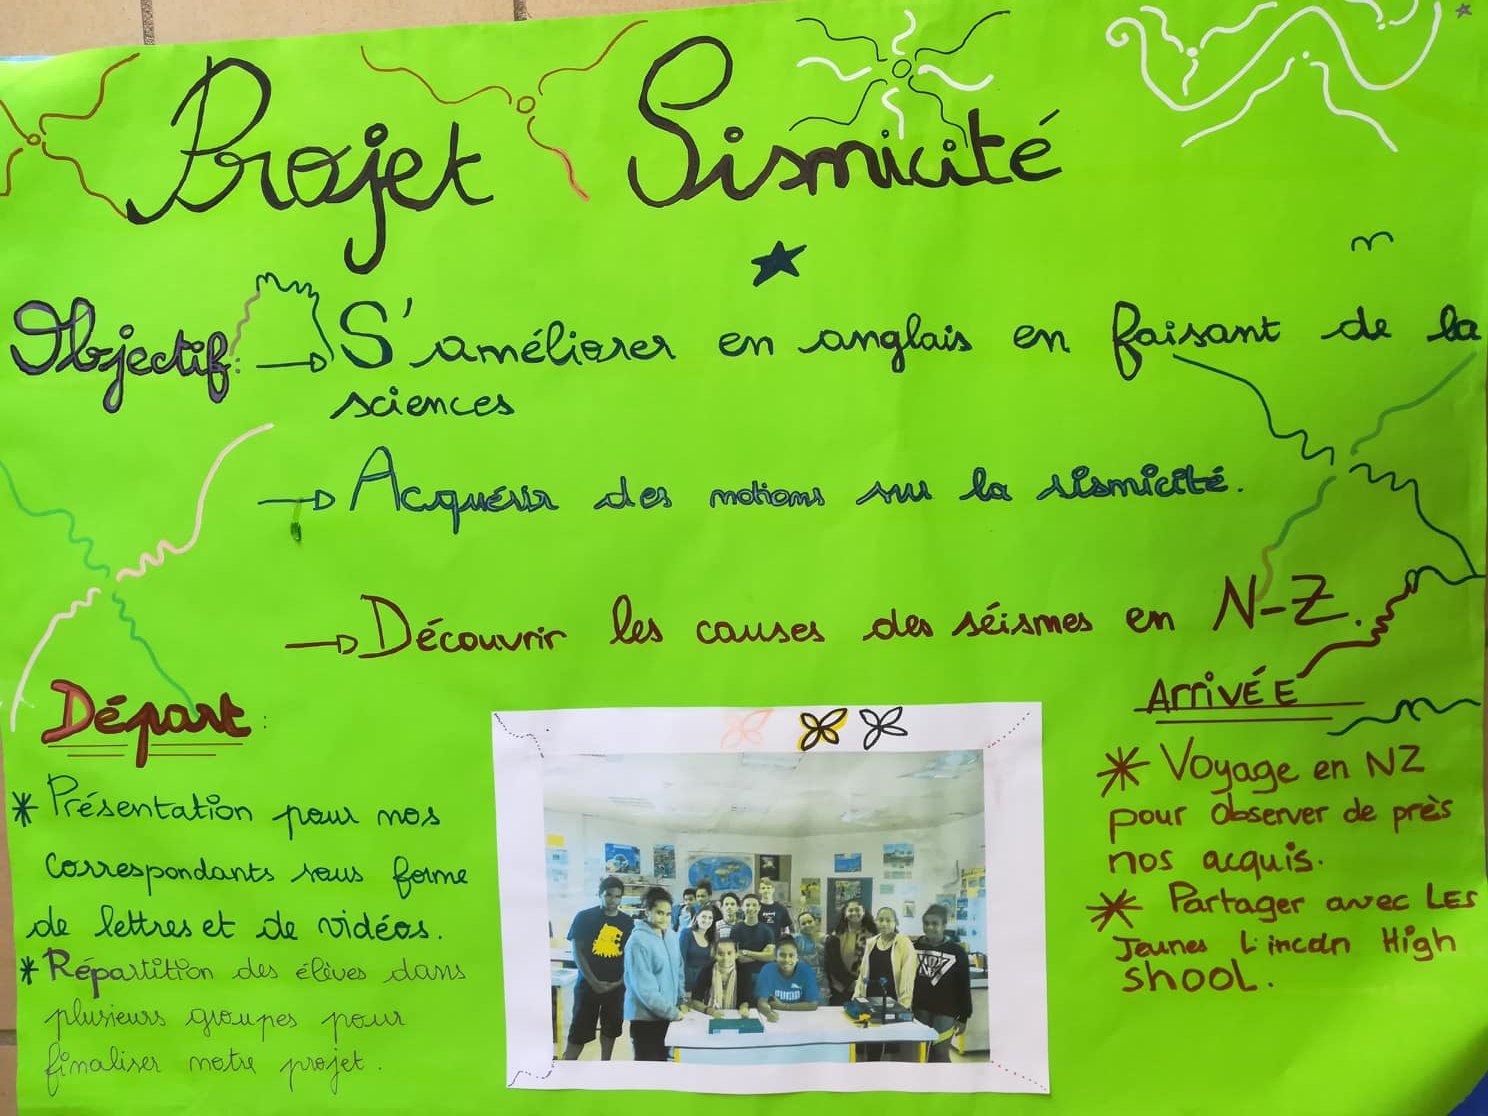 Projet Sismicité
Objectif: → S'améliorer en anglais en faisant de la
sciences
→ Acquérir des notions sur la sismicité.
→ Découvrir les causes des séismes en N-Z.
Départ:
* Présentation pour nos
correspondants sous forme
de lettres et de vidéos.
* Répartition des élèves dans
plusieurs groupes pour
finaliser notre projet.
ArrivÉE
* Voyage en NZ
pour observer de près
nos acquis.
* Partager avec LES
Jeunes Lincoln High
shool.
PUMA